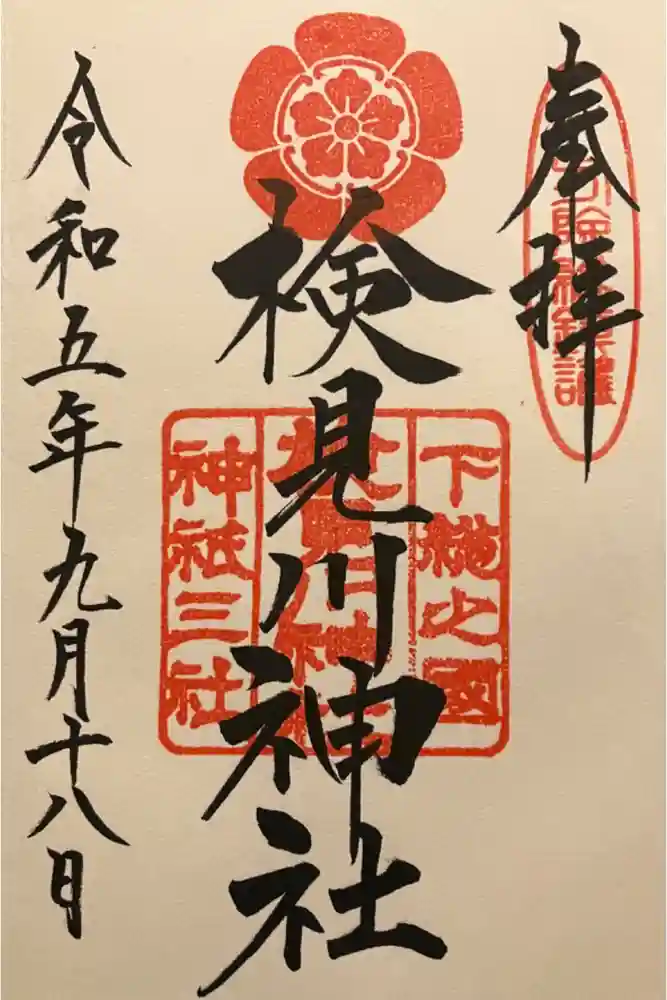 奉拝
下総之國
検見川神社
神祇三社
令和五年九月十八日